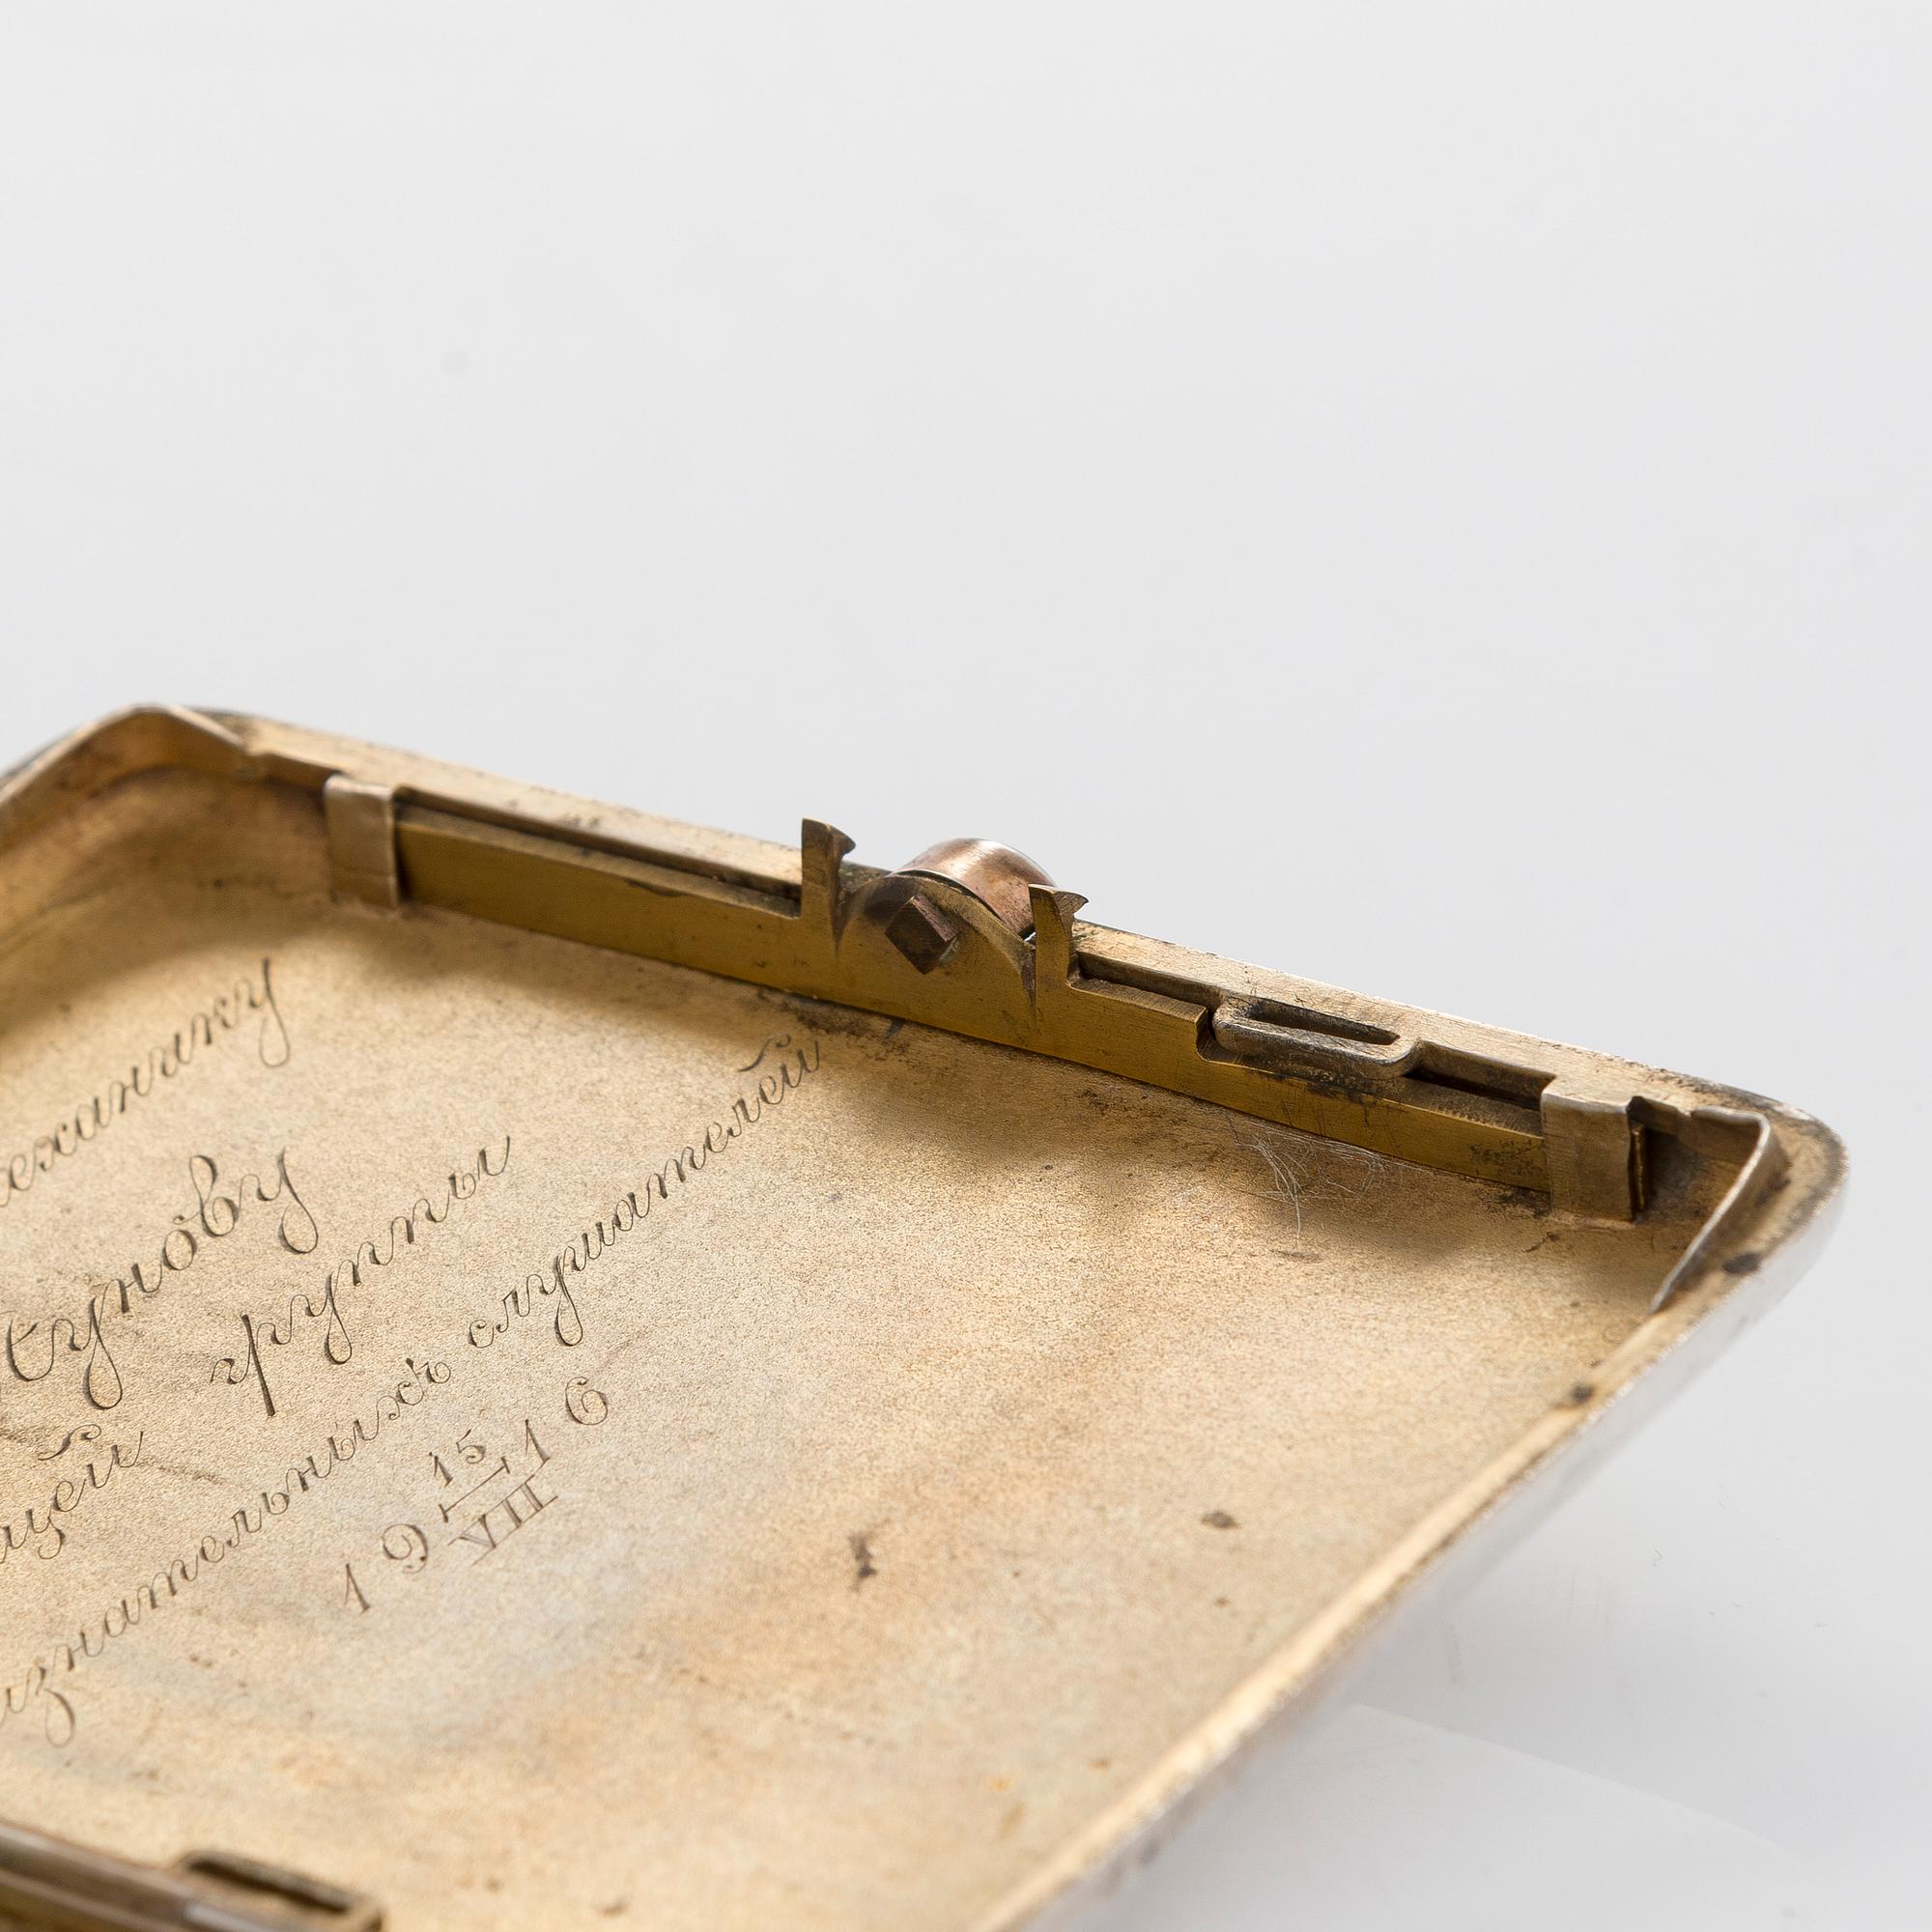 механику
тунову
щей группы
знательныхъ слушателей
19 15/VII 16